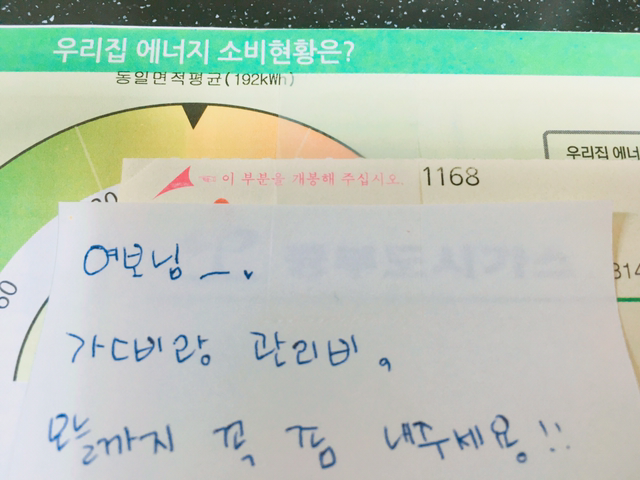 우리집 에너지 소비현황은?
동일면적평균(192kWh)
우리집 에너
이 부분을 개봉해 주십시오. 1168
314
여보님_.
가스비랑 관리비,
오늘까지 꼭 좀 내주세용!!